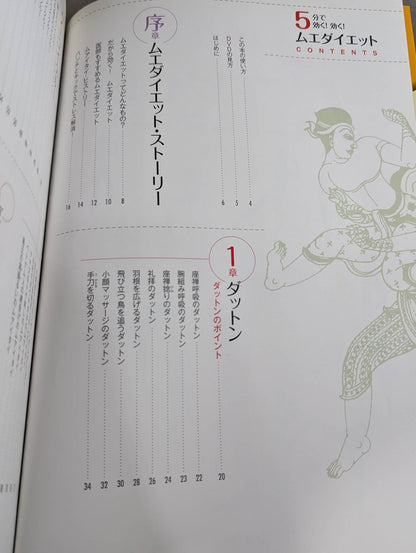 5分で
効く!効く!
ムエダイエット
CONTENTS
はじめに 6
DVDの見方 5
この本の使い方 4
序章 ムエダイエット・ストーリー
ムエダイエットってどんなもの? 8
だから効く! ムエダイエット 10
医師もすすめるムエダイエット 12
ムアイタイ・ヒストリー 14
パンチとキックでストレス解消! 16
1章 ダットン
ダットンのポイント 20
座禅呼吸のダットン 22
腕組み呼吸のダットン 23
座禅捻りのダットン 24
礼拝のダットン 26
羽根を広げるダットン 28
飛び立つ鳥を追うダットン 30
小顔マッサージのダットン 32
手刀を切るダットン 34